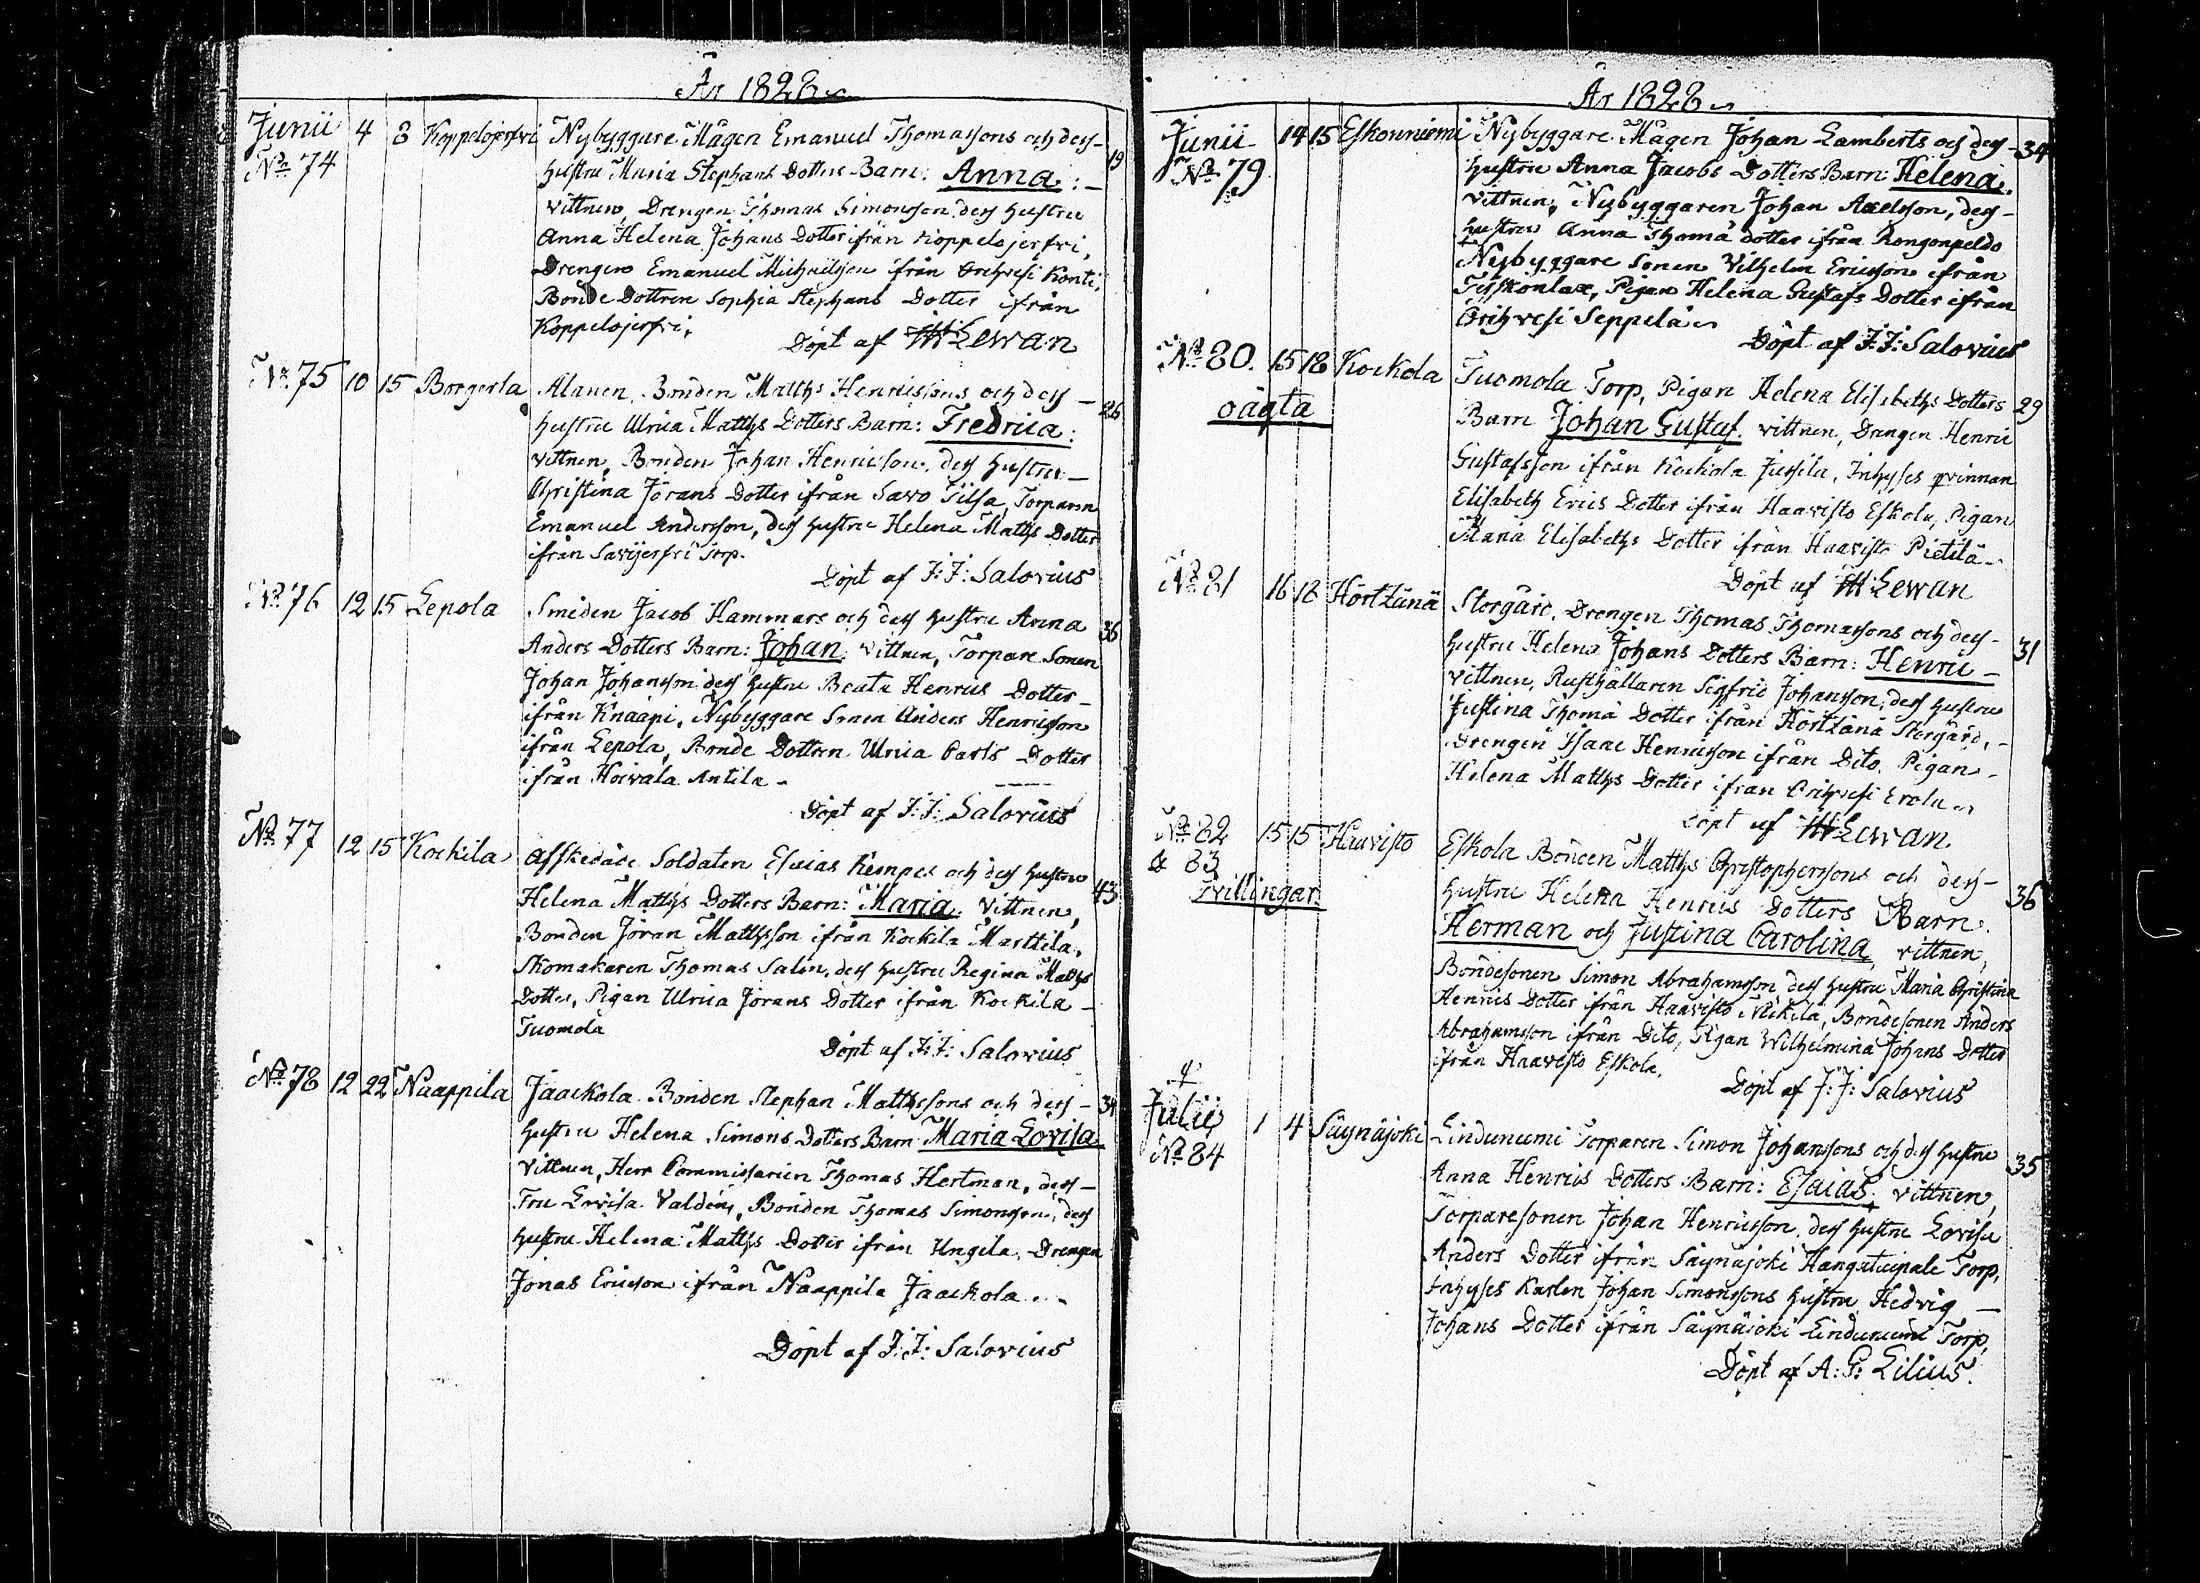 År 1828
Junii 4 8 Koppelojerfvi Nybyggare Mågen Emanuel Thomassons och dess 19
No 74 hustru Maria Stephans Dotters Barn: Anna:
vittnen, Drengen Thomas Simonsson, dess hustru
Anna Helena Johans Dotter ifrån Koppelojerfvi,
Drengen Emanuel Michailsson ifrån Orihvesi Konti,
Bonde Dottren Sophia Stephans Dotter ifrån
Koppelojerfvi,
Döpt af Lewan
No 75 10 15 Borgerla Alanen, Bonden Matths Henricssons och dess 26
hustru Ulrica Matths Dotters Barn: Fredrica:
vittnen, Bonden Johan Henricsson, dess hustru
Christina Jörans Dotter ifrån Savo Tilsa, Torparen
Emanuel Andersson, dess hustru Helena Matths Dotter
ifrån Savijerfvi Torp.
Döpt af J: J: Salovius
No 76 12 15 Lepola Smeden Jacob Hammars och dess hustru Anna 36
Anders Dotters Barn: Johan, vittnen, Torpare Sonen
Johan Johansson dess hustru Beata Henrics Dotter
ifrån Knaapi, Nybyggare Sonen Anders Henricsson
ifrån Lepola, Bonde Dottren Ulrica Carls Dotter
ifrån Hoivala Antila
Döpt af J: J: Salovius
No 77 12 15 Kockila Affskedade Soldaten Esaias Kempes och dess hustru
Helena Matths Dotters Barn: Maria: Vittnen, 43
Bonden Jöran Mathsson ifrån Kockila Marttila,
Skomakaren Thomas Salin, dess hustru Regina Maths
Dotter, Pigan Ulrica Jörans Dotter ifrån Kockila
Tuomola
Döpt af J: J: Salovius
No 78 12 22 Naappila Jaackola Bonden Stephan Matthssons och dess 34
hustru Helena Simons Dotters Barn Maria Lovisa
Vittnen, Herr Commissarien Thomas Hertman, dess
Fru Lovisa Valdén, Bonden Thomas Simonsson, dess
hustru Helena Matths Dotter ifrån Ungila, Drengen
Jonas Ericsson ifrån Naappila Jaackola
Döpt af J: J: Salovius
År 1828
Junii 14 15 Eskonniemi Nybyggare Mågen Johan Lamberts och dess 34
No 79 hustru Anna Jacobs Dotters Barn: Helena.
vittnen, Nybyggaren Johan Axelsson, dess
hustru Anna Thomä dotter ifrån Rongonpeldo
Nybyggare Sonen Vilhelm Ericsson ifrån
Pigan Helena Gustafs Dotter ifrån
Orihvesi Seppelä
Döpt af J: J: Salovius
No 80. 15 18 Kockola Tuomola Torp, Pigan Helena Elisabeths Dotters 29
oägta Barn Johan Gustaf. vittnen, Drengen Henric
Gustafsson ifrån Kockola Jussila, Inhyses qvinnan
Elisabeth Erics Dotter ifrån Haavisto Eskola, Pigan
Maria Elisabeths Dotter ifrån Haavisto Pietilä
Döpt af Lewan
No 81 16 18 Hörtzänä Storgård, Drengen Thomas Thomassons och dess
hustru Helena Johans Dotters Barn: Henric 31
vittnen, Rusthållaren Sigfrid Johansson, dess hustru
Justina Thomä Dotter ifrån Hörtzänä Storgård,
Drengen Isaac Henricsson ifrån Dito, Pigan
Helena Matths Dotter ifrån Orihvesi Erola
Döpt af Lewan
No 82 15 15 Haavisto Eskola Bonden Matths Christopherssons och dess
& 83 hustru Helena Henrics Dotters Barn. 36
Tvillingar Herman och Justina Carolina, vittnen,
Bondesonen Simon Abrahamsson dess hustru Maria Christina
Henrics Dotter ifrån Haavisto Mickila, Bondesonen Anders
Abrahamsson ifrån Dito, Pigan Wilhelmina Johans Dotter
ifrån Haavisto Eskola.
Döpt af J: J: Salovius
Julii 1 4 Säynäjoki Lindunumi Torparen Simon Johanssons och dess hustru
No 84 Anna Henrics Dotters Barn: Esaias, vittnen, 35
Torparesonen Johan Henricsson, dess hustru Lovisa
Anders Dotter ifrån Säynäjoki Torp,
Inhyses Karlen Johan Simonssons hustru Hedvig
Johans Dotter ifrån Säynäjoki Lindunumi Torp,
Döpt af A: G: Lilius.